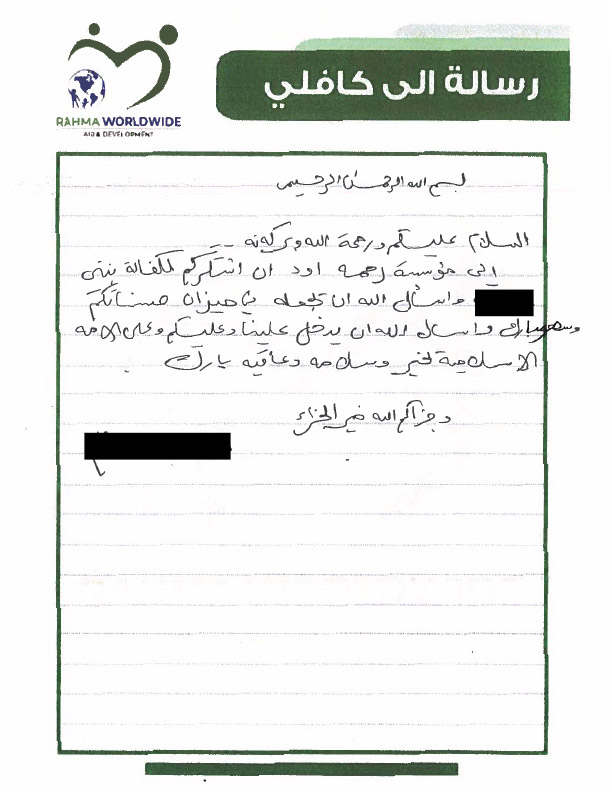 RAHMA WORLDWIDE
AID & DEVELOPMENT
رسالة الى كافلي
بسم الله الرحمن الرحيم
السلام عليكم ورحمة الله وبركاته
إلى مؤسسة رحمه اود ان اشكركم لكفالة بنتي
واسأل الله ان تجعله في ميزان حسناتكم
واسال الله ان يدخل علينا وعليكم وعلى الامه
الاسلامية بخير وسلامه وعافيه يارب
وجزاكم الله خير الجزاء